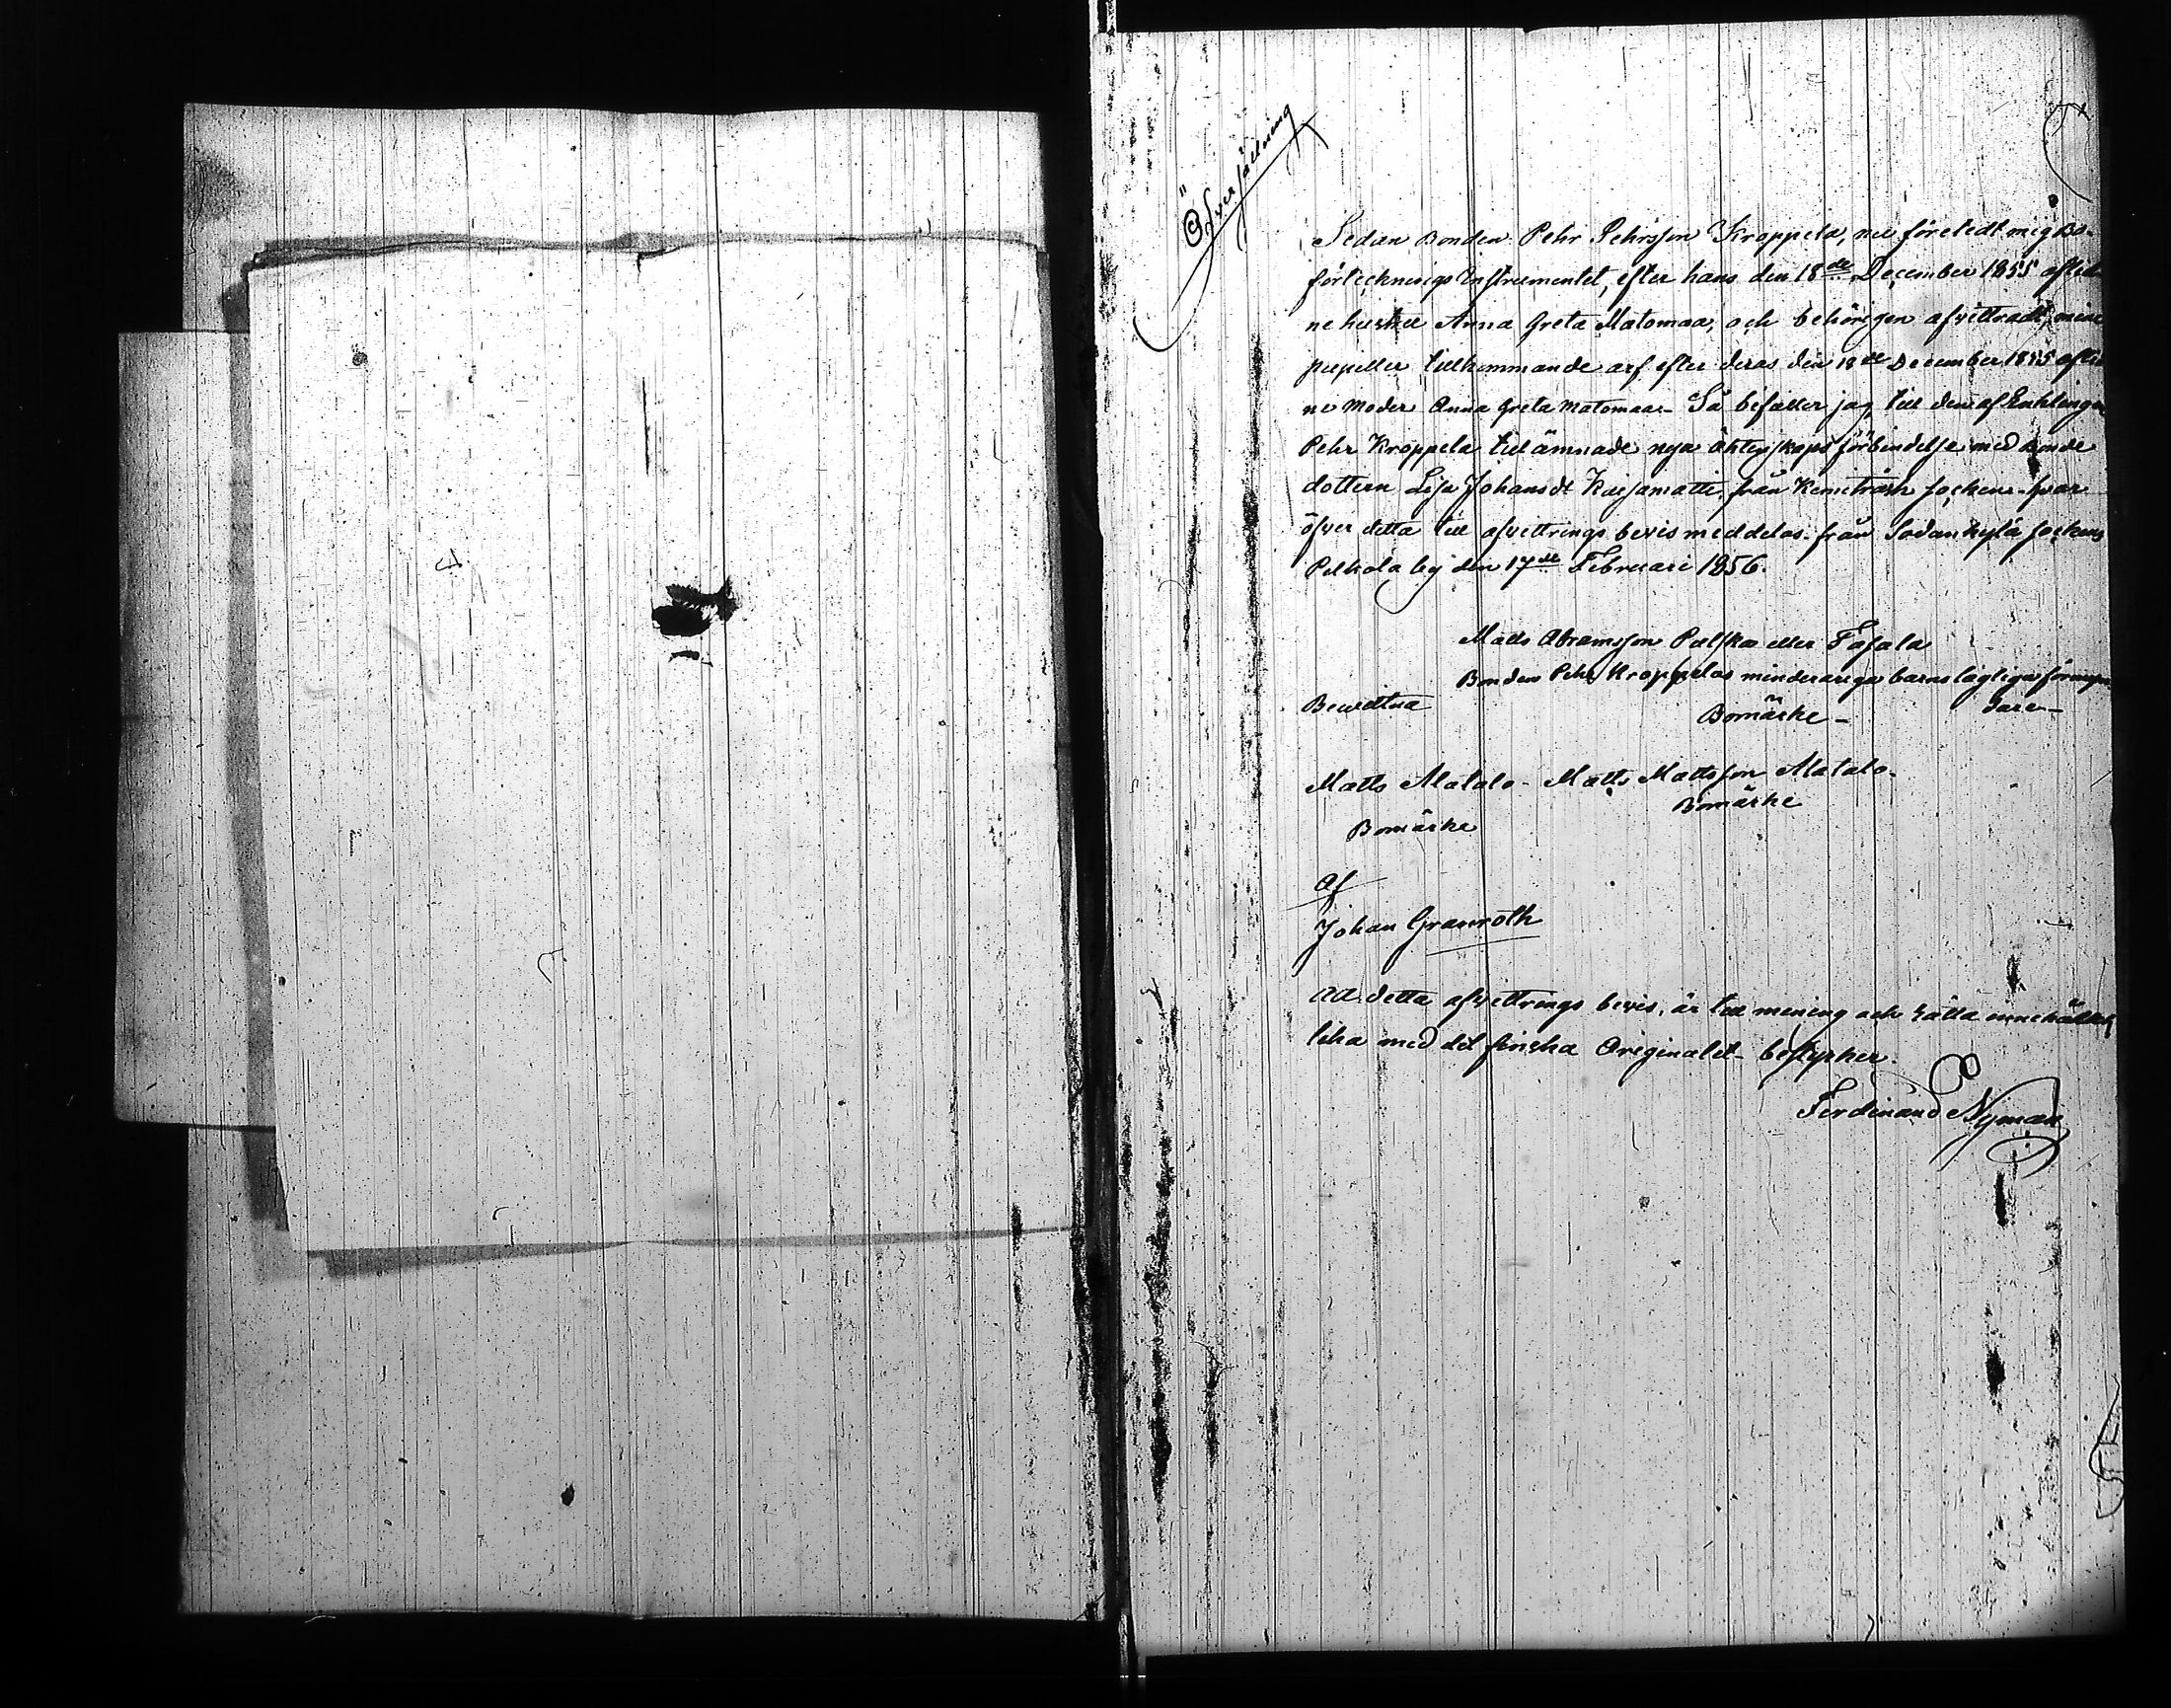 Öfversättning
Sedan Bonden Pehr Pehrsson Kroppela, nu företedt mig Bo-
förtecknings Instrumentet, efter hans den 18de December 1855 aflid
ne hustru Anna Greta Matomaa, och behörigen afvittradt, mine
pupiller tillkommande arf efter deras den 18de December 1855 aflid
ne Moder Anna Greta Matomaa. Så bifaller jag till den af Enklingen
Pehr Kroppela tillämnade nya äktenskaps förbindelse med bonde
dottern Lisa Johansdt Kaisamatti från Kemiträsk socken. hvar
öfver detta till afvittrings bevis meddelas. från Sodankylä sockens
Pelkola by den 17de Februari 1856.
Matts Abramsson Pulska eller Tafala
Bonden Pehr Kroppelas minderariga barns lagliga förmyn
Bomärke - dare -
Bewittna
Matts Alatalo - Matts Mattsson Alatalo.
Bomärke
Bomärke
Af
Johan Granroth
Att detta afvittrings bevis, är till mening och rätta innehållet
lika med det finska Originalet - bestyrker.
Ferdinand Nyman